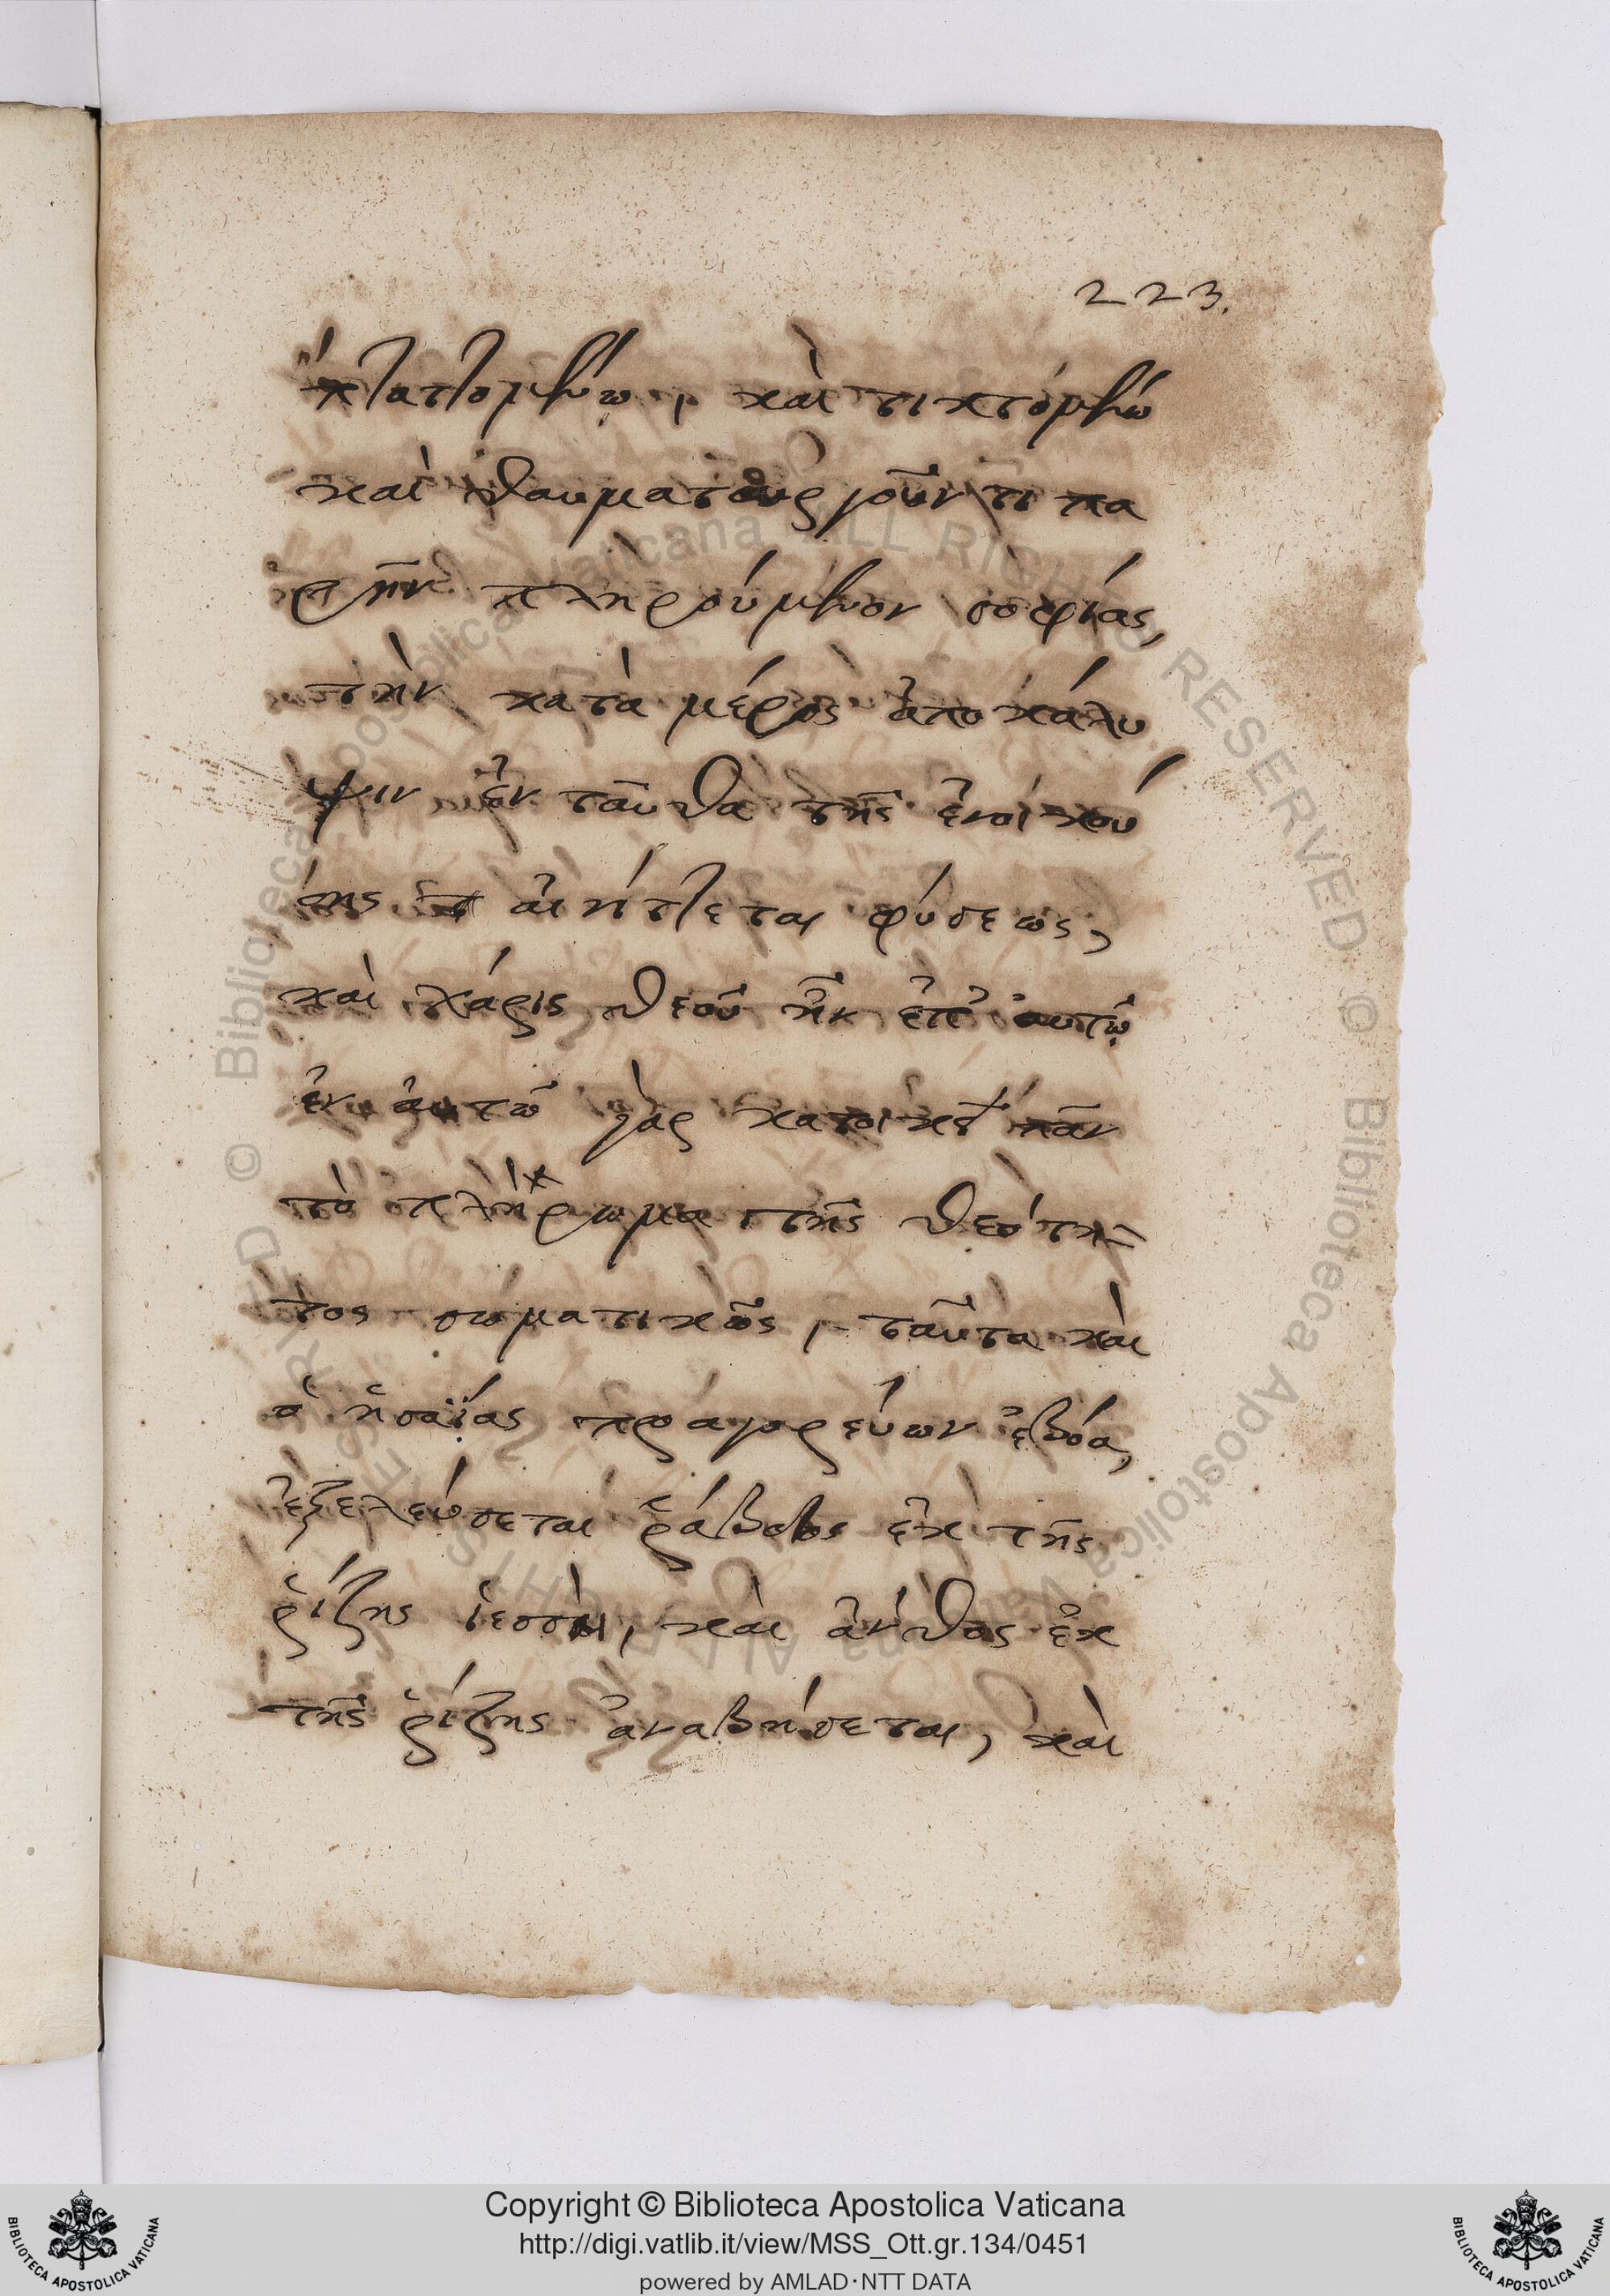 223.
πλαττομένω, καὶ τικτόμένω
καὶ θαυματουργοῦντι πα
ρῆν πληρούμενον σοφίας,
τὴν κατὰ μέρος ἀποκάλυ
ψιν ἐν ταῦθα τῆς ἐνοικού
σης αἰνίττεται φύσεως,
καὶ χάρις θεοῦ ἦν ἐπ' αυτῶ
ἐν αὐτῶ γὰρ κατοικεῖ πᾶν
τὸ πλήρωμα τῆς θεότη-
τος σωματικῶς, ταῦτα καὶ
ὁ ἡσαΐας προαγορεύων ἐβόα,
ἐξελεύσεται ῥάβδος ἐκ τῆς
ῥίζης ἰεσσαὶ, καὶ ἄνθος ἐκ
τῆς ῥίζης ἀναβήσεται, καὶ
© Biblioteca Apostolica Vaticana ALL RIGHTS RESERVED © Biblioteca Apostolica Vaticana ALL RIGHTS RESERVED
Copyright © Biblioteca Apostolica Vaticana
http://digi.vatlib.it/view/MSS_Ott.gr.134/0451
powered by AMLAD·NTT DATA
BIBLIOTECA APOSTOLICA VATICANA
BIBLIOTECA APOSTOLICA VATICANA